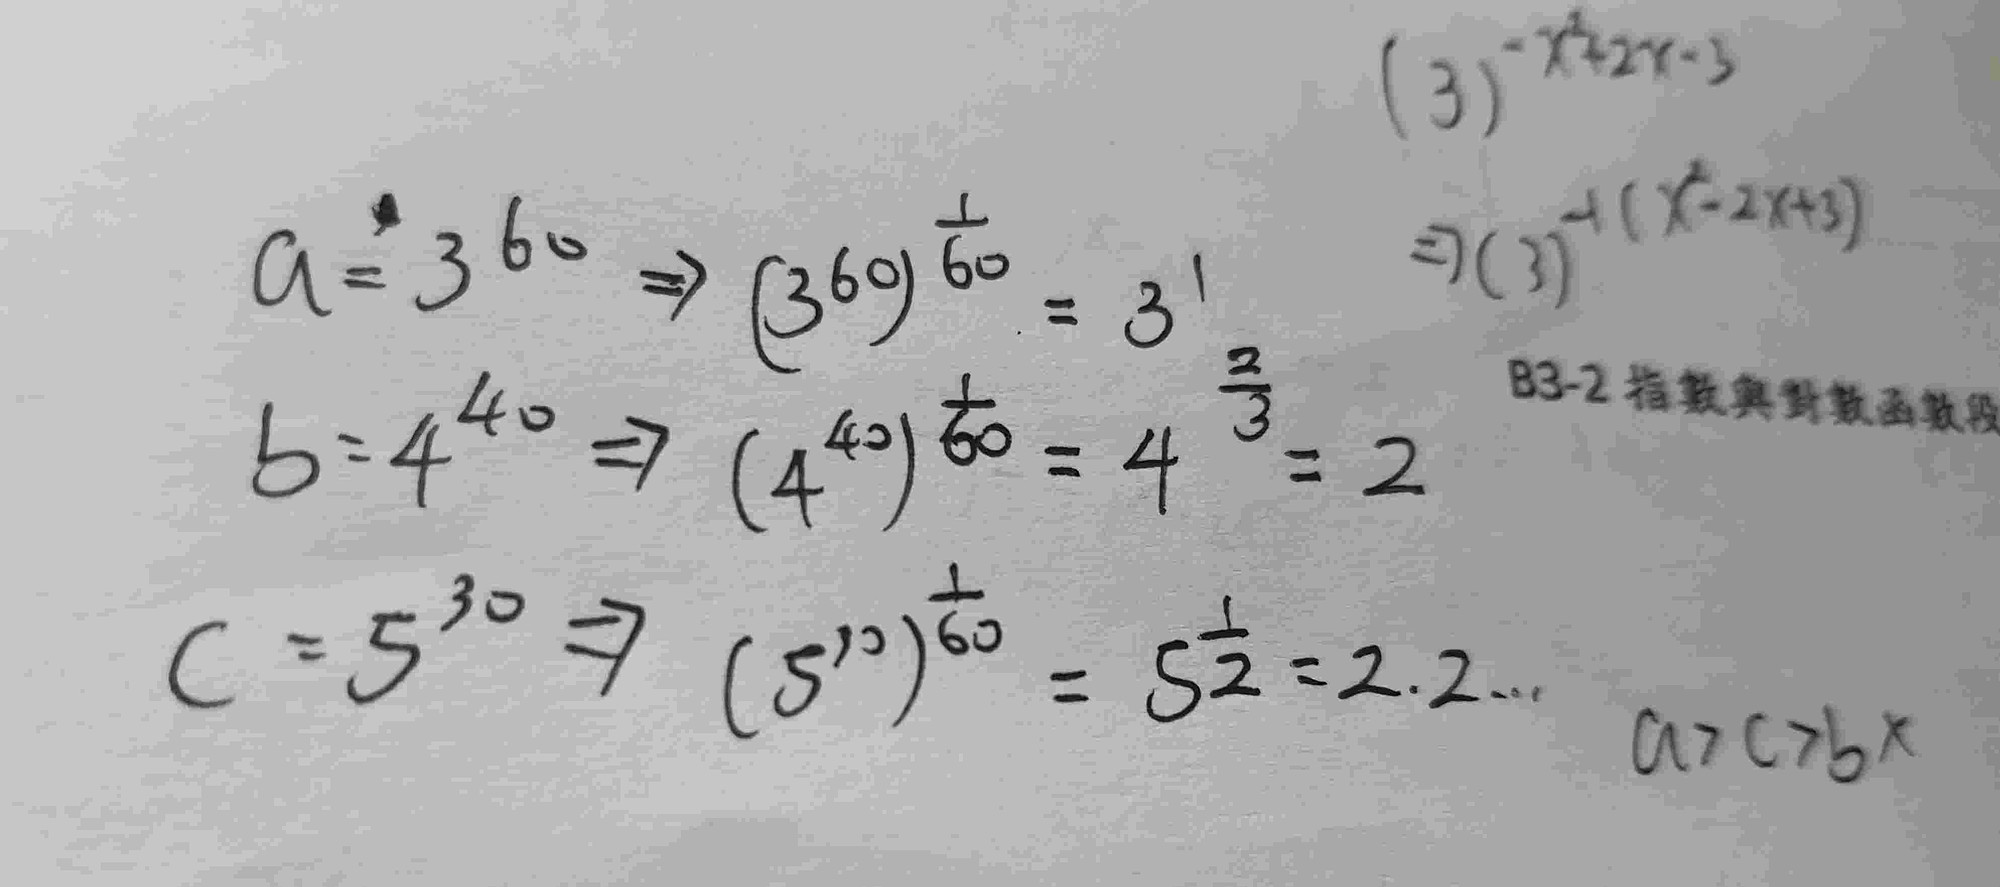 (3)^{-x²+2x-3}
⇒(3)^{-1(x²-2x+3)}
B3-2 指數與對數函數段
a = 3^{60} ⇒ (3^{60})^{\frac{1}{60}} = 3^{1}
b = 4^{40} ⇒ (4^{40})^{\frac{1}{60}} = 4^{\frac{2}{3}} = 2
c = 5^{30} ⇒ (5^{30})^{\frac{1}{60}} = 5^{\frac{1}{2}} = 2.2...
a>c>b x